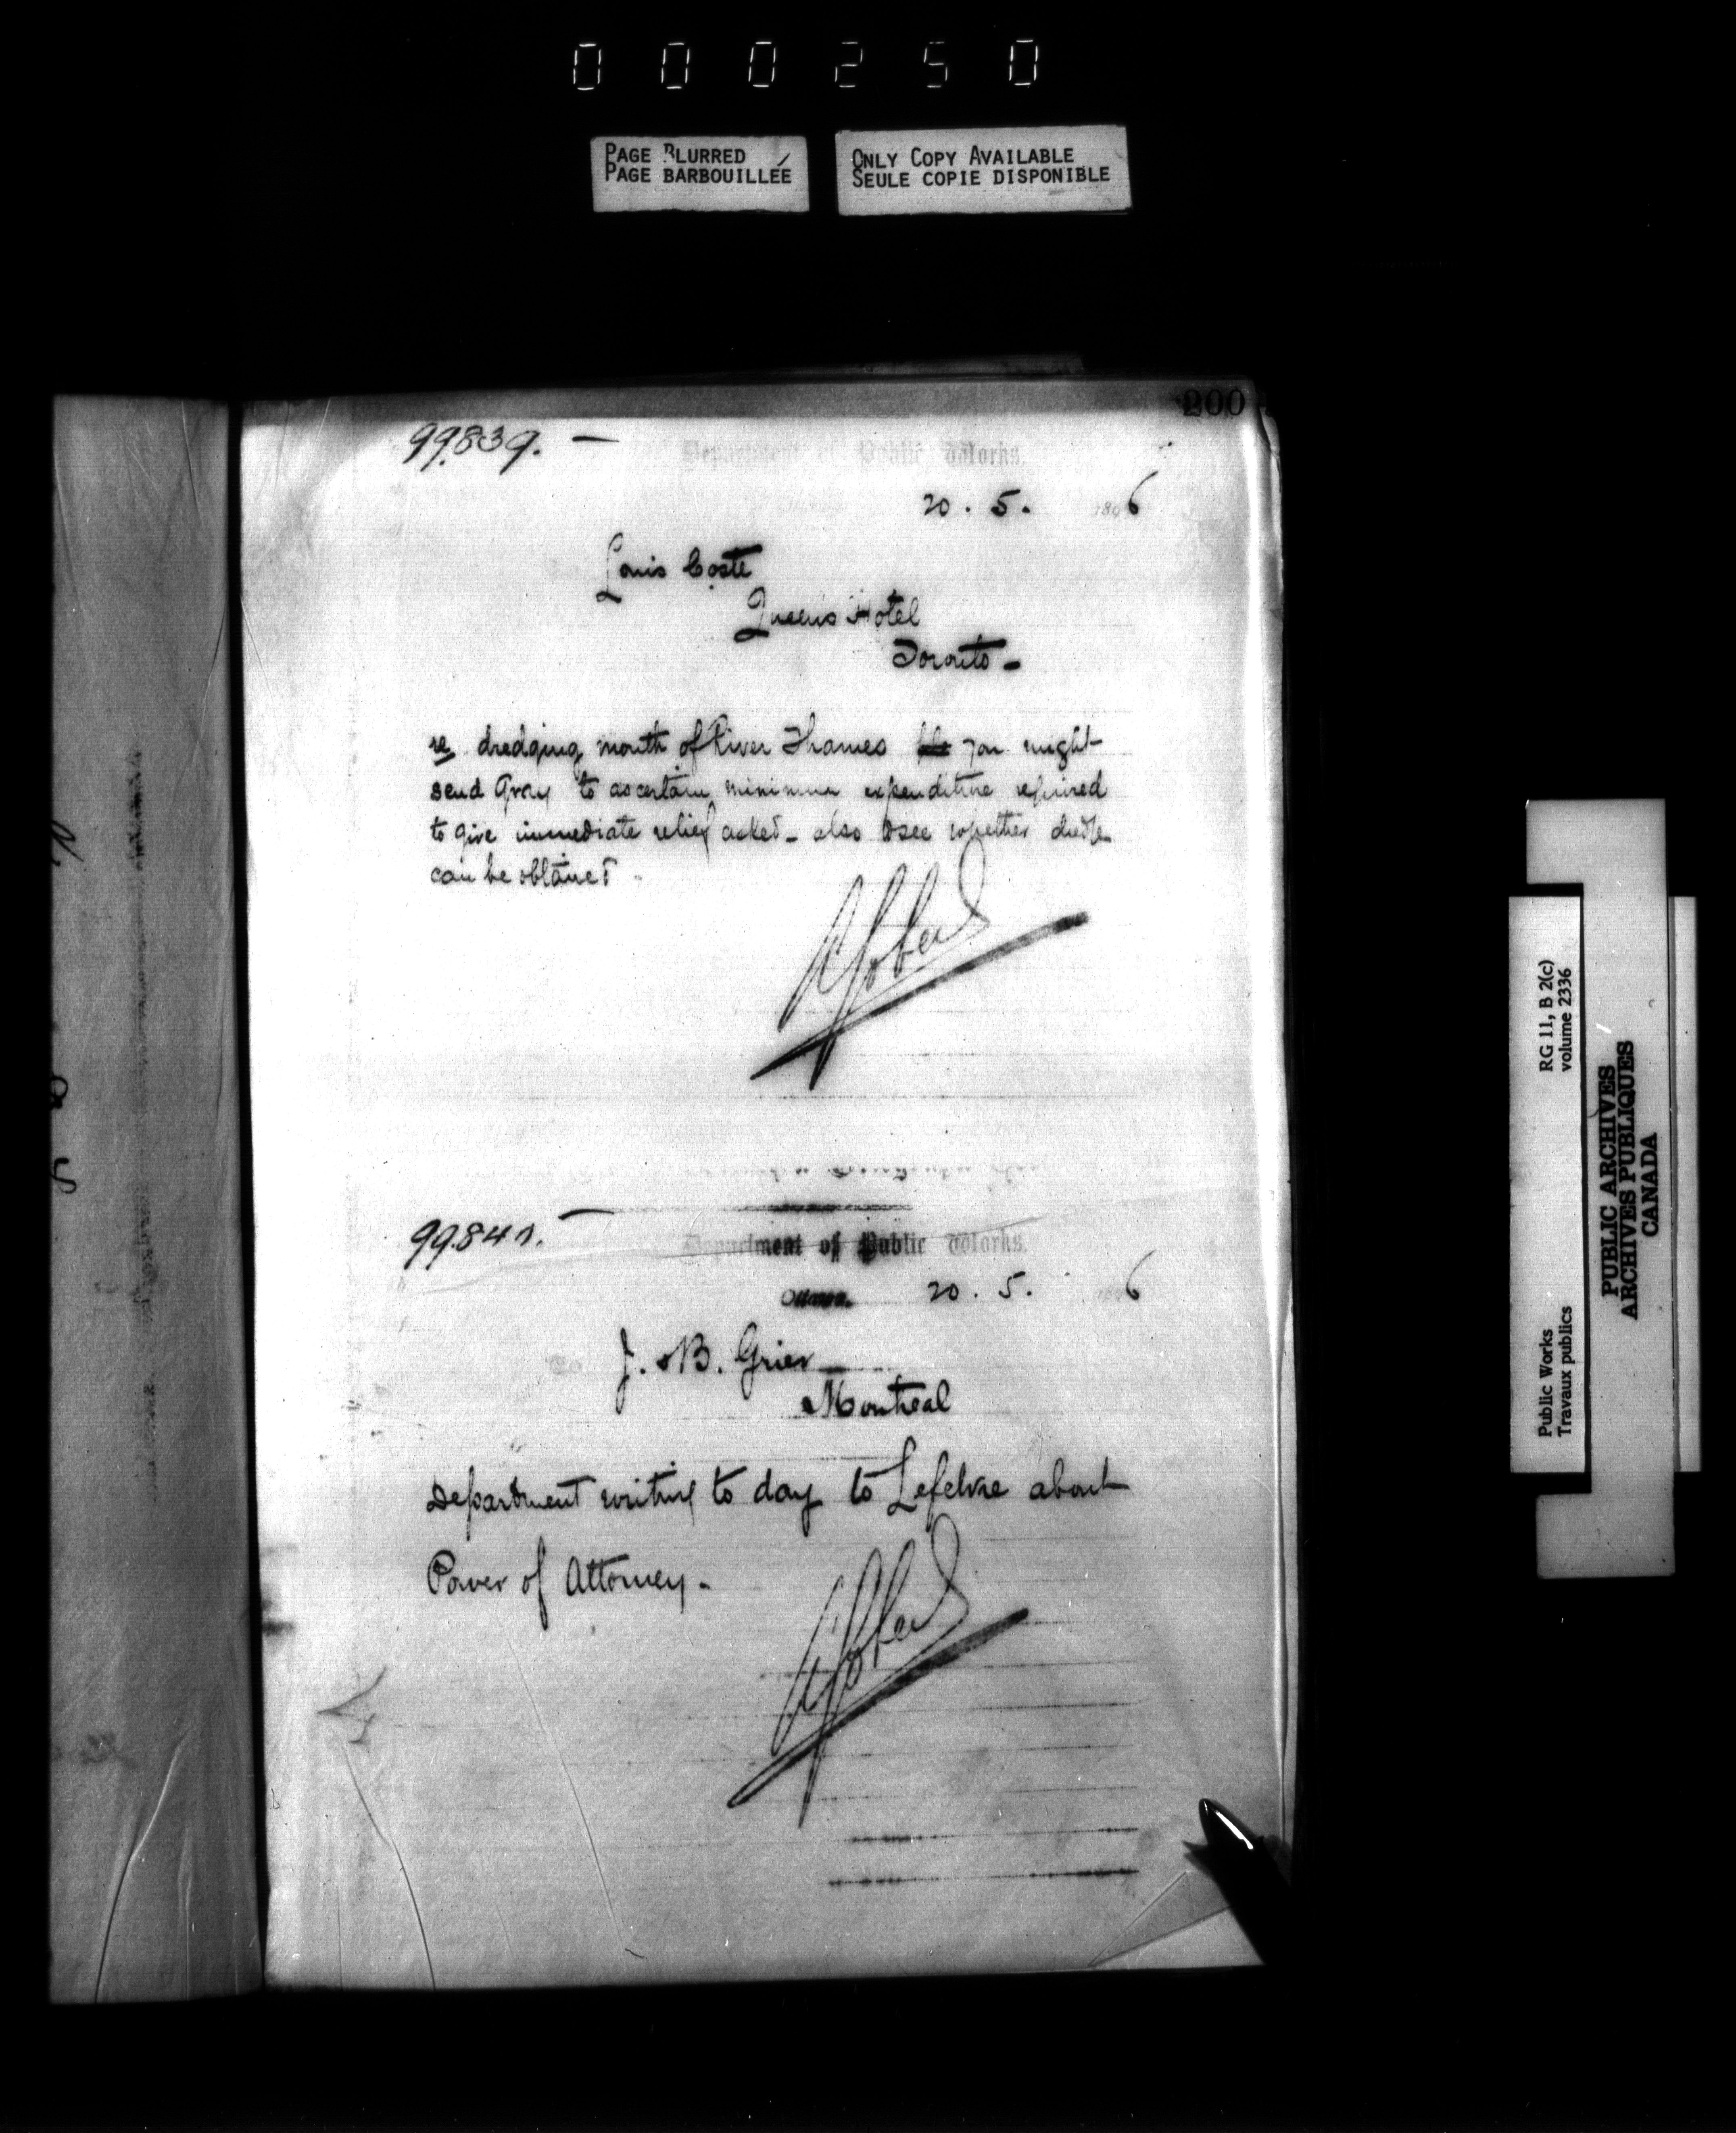 000250
PAGE BLURRED
PAGE BARBOUILLÉE
ONLY COPY AVAILABLE
SEULE COPIE DISPONIBLE
200
99839. —
Department of Public Works.
20. 5. 1896
Louis Coste
Queen's Hotel
Toronto -
re dredging mouth of River Thames you might
send Gray to ascertain minimum expenditure required
to give immediate relief asked - also to see whether dredge
can be obtained
AGobeil
99840. —
Department of Public Works.
Ottawa. 20. 5. 1896
J. B. Grier
Montreal
Department writing to day to Lefebvre about
Power of Attorney -
AGobeil
RG 11, B 2(c)
volume 2336
Public Works
Travaux publics
PUBLIC ARCHIVES
ARCHIVES PUBLIQUES
CANADA